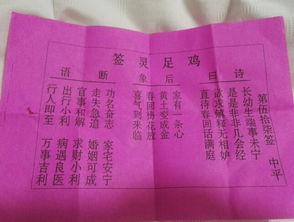 鸡足灵签
诗曰
后象
断语
第伍拾柒签 中平
长幼生端事未宁
是是非非几会经
欲求解释无相妒
直待春回话满庭
家有一条心
黄土变成金
春回梅花放
喜气到来临
功名奋志 家宅安宁
走失急追 婚姻可成
官事和解 求财小利
出行小利 病遇良医
行人即至 万事吉利